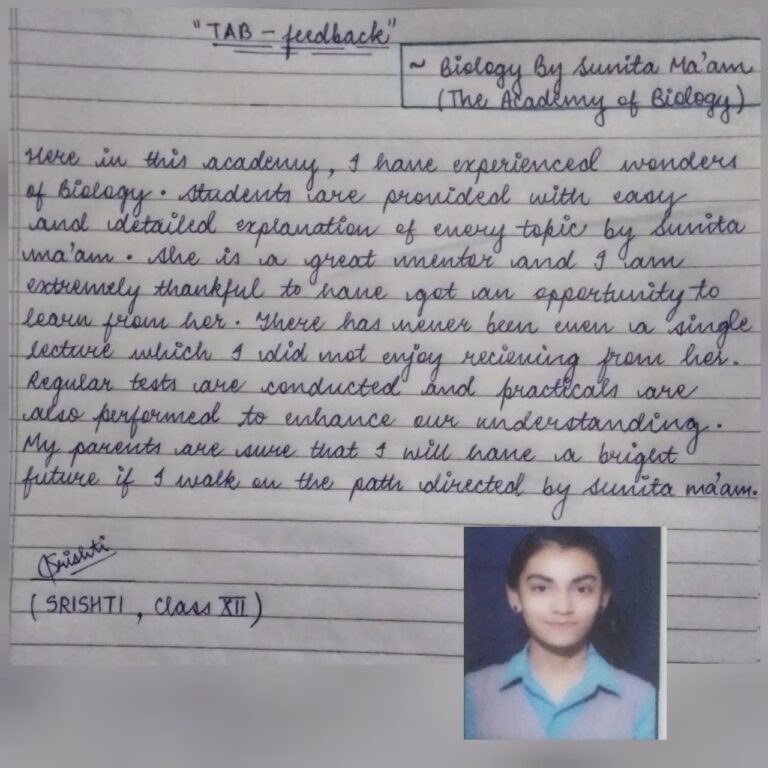 "TAB - feedback"
~ Biology By Sunita Ma'am
(The Academy of Biology)
Here in this academy, I have experienced wonders
of Biology. Students are provided with easy
and detailed explanation of every topic by Sunita
ma'am. She is a great mentor and I am
extremely thankful to have got an opportunity to
learn from her. There has never been even a single
lecture which I did not enjoy recieving from her.
Regular tests are conducted and practicals are
also performed to enhance our understanding.
My parents are sure that I will have a bright
future if I walk on the path directed by Sunita ma'am.
Srishti
(SRISHTI, Class XII)